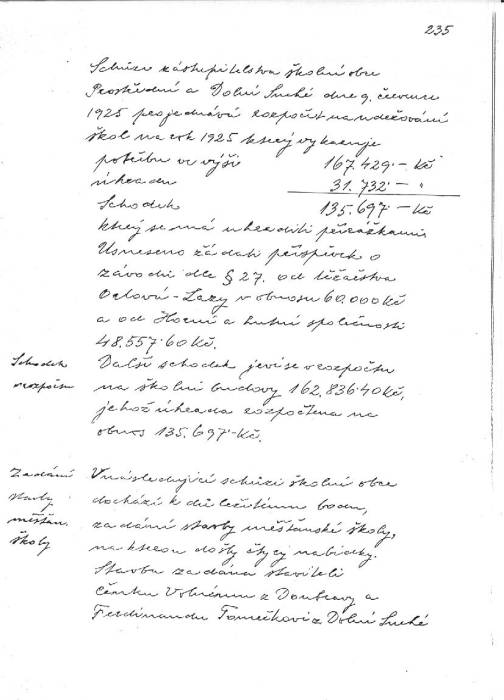 235
Schůze zástupitelstva školní obce
Prostřední a Dolní Suché dne 9. července
1925 projednává rozpočet na udržování
škol na rok 1925 který vykazuje
potřebu ve výši 167.429·— Kč
úhradu 31.732·— "
Schodek 135.697·— Kč
který se má uhraditi přirážkami.
Usneseno žádati příspěvek o
závodů dle § 27. od těžařstva
Orlová-Lazy v obnosu 60.000 Kč
a od Horní a hutní společnosti
48.557·60 Kč.
Schodek
rozpočtu
Další schodek jeví se v rozpočtu
na školní budovy 162.836·40 Kč,
jehož úhrada rozpočtena na
obnos 135.697·Kč.
Zadání
stavby
měšťan.
školy
V následující schůzi školní obce
dochází k důležitému bodu,
zadání stavby měšťanské školy,
na kterou došly čtyry nabídky.
Stavba zadána staviteli
Čeňku Volnému z Doubravy a
Ferdinandu Tomečkovi z Dolní Suché